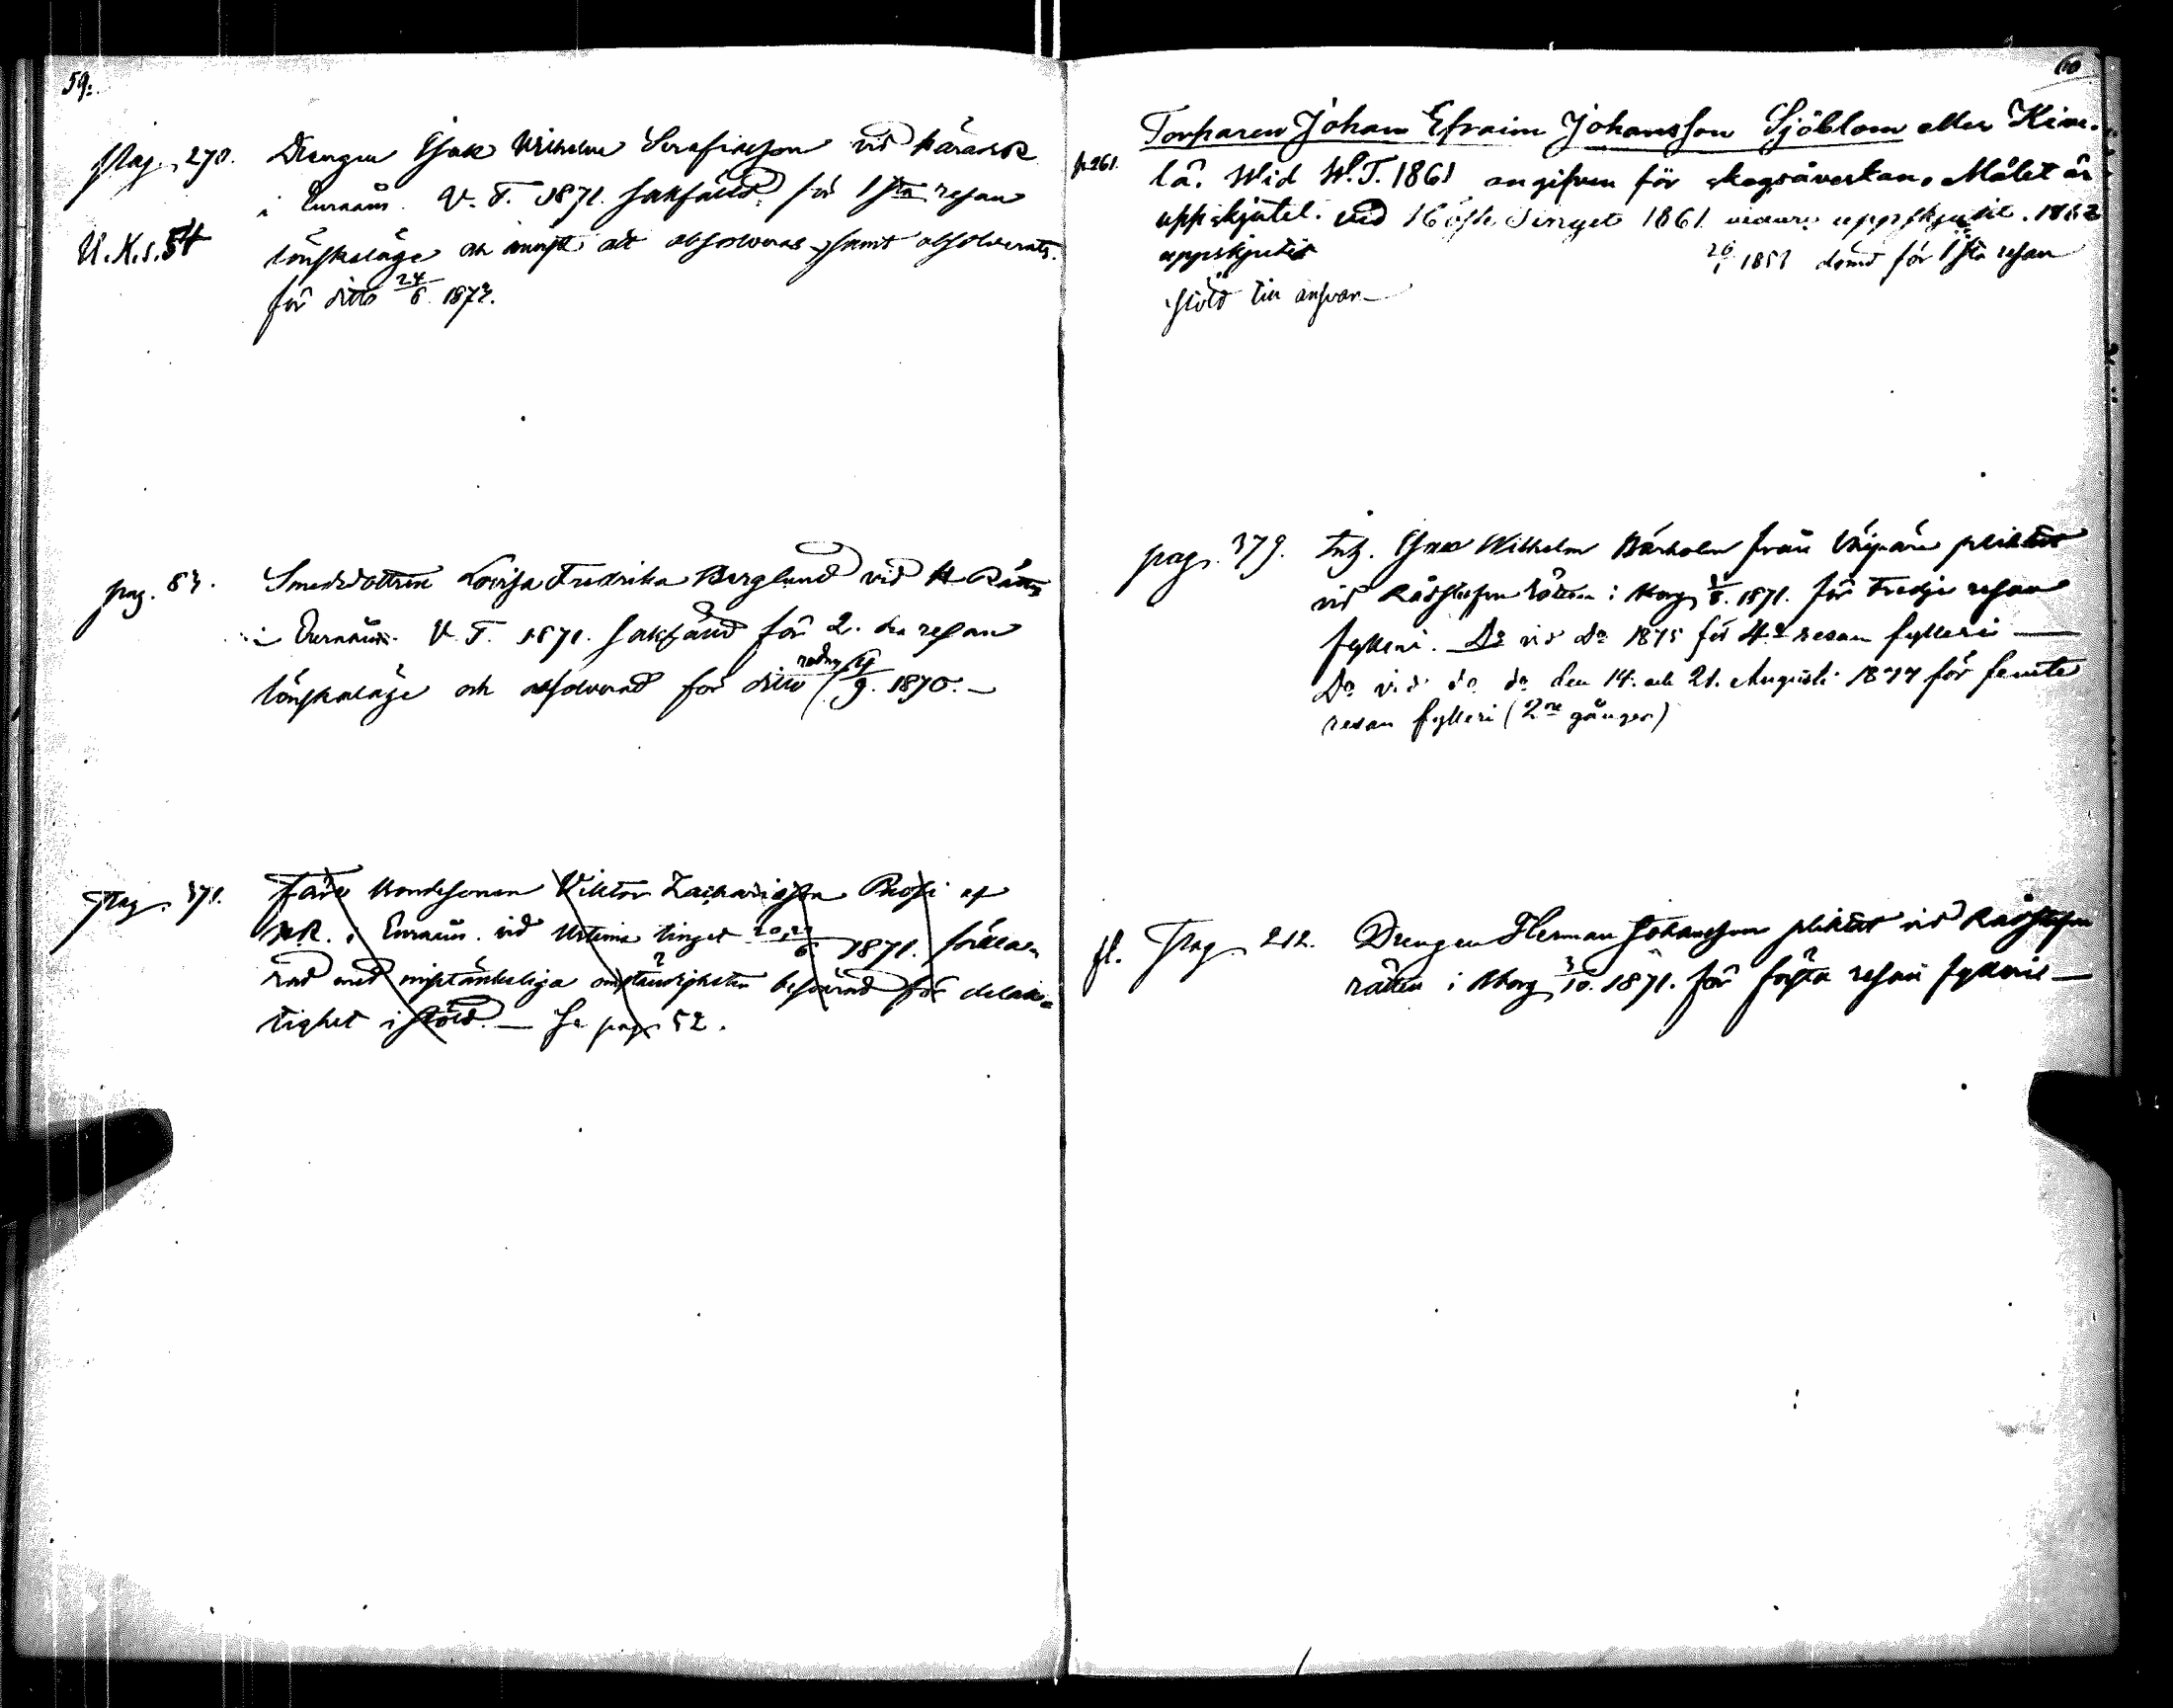 59.
Pag. 270. Drengen Isak Wilhelm Serafinsson vid HäradsR
i Euraåm. V. T. 1871. sakfälld för 1sta resan
U.K.s.54 lönskaläge och att absolveras, samt absolverats
för ditto 24/6 1872.
pag. 87. Smedsdottren Lovisa Fredrika Berglund vid H Rätten
i Euraåm. V. T. 1871. sakfälld för 2. dra resan
lönskaläge och absolverad för ditto redan 4/9. 1870.
Pag. 371. Bondesonen Viktor Zachariasson af
HR. i Euraåm. vid tinget 1871. förkla-
rad med misstänkeliga omständigheter besvärad för delak-
tighet i stöld. — Se pag. 52.
60
Torparen Johan Efraim Johansson Sjöblom eller Kive-
p. 261. lä. Wid W.T. 1861 angifven för skogsåverkan. Målet är
uppskjutet. vid Höste Tinget 1861 uppskjutit. 1862
uppskjutit 1853 dömd för 1sta resan
stöld till ansvar—
pag. 379. Inh. Isak Wilhelm från pliktat
vid Rådstufvu rätten i Åbog 1/8. 1871. för tredje resan
fylleri. Do vid do 1875 för 4de resan fylleri —
Do vid do do den 14. och 21. Augusti 1877 för femte
resan fylleri (2ne gånger)
fl. Pag. 212. Drengen Herman Johansson pliktat vid Rådstufvu
rätten i Åborg 3/10. 1871. för första resan fylleri —